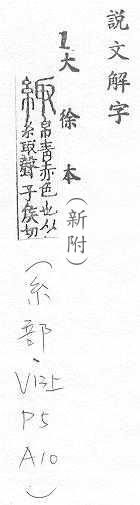 說文解字
1大徐本(新附)
緅
帛青赤色也从
糸取聲子侯切
(糸部、V13上
P5
A10)